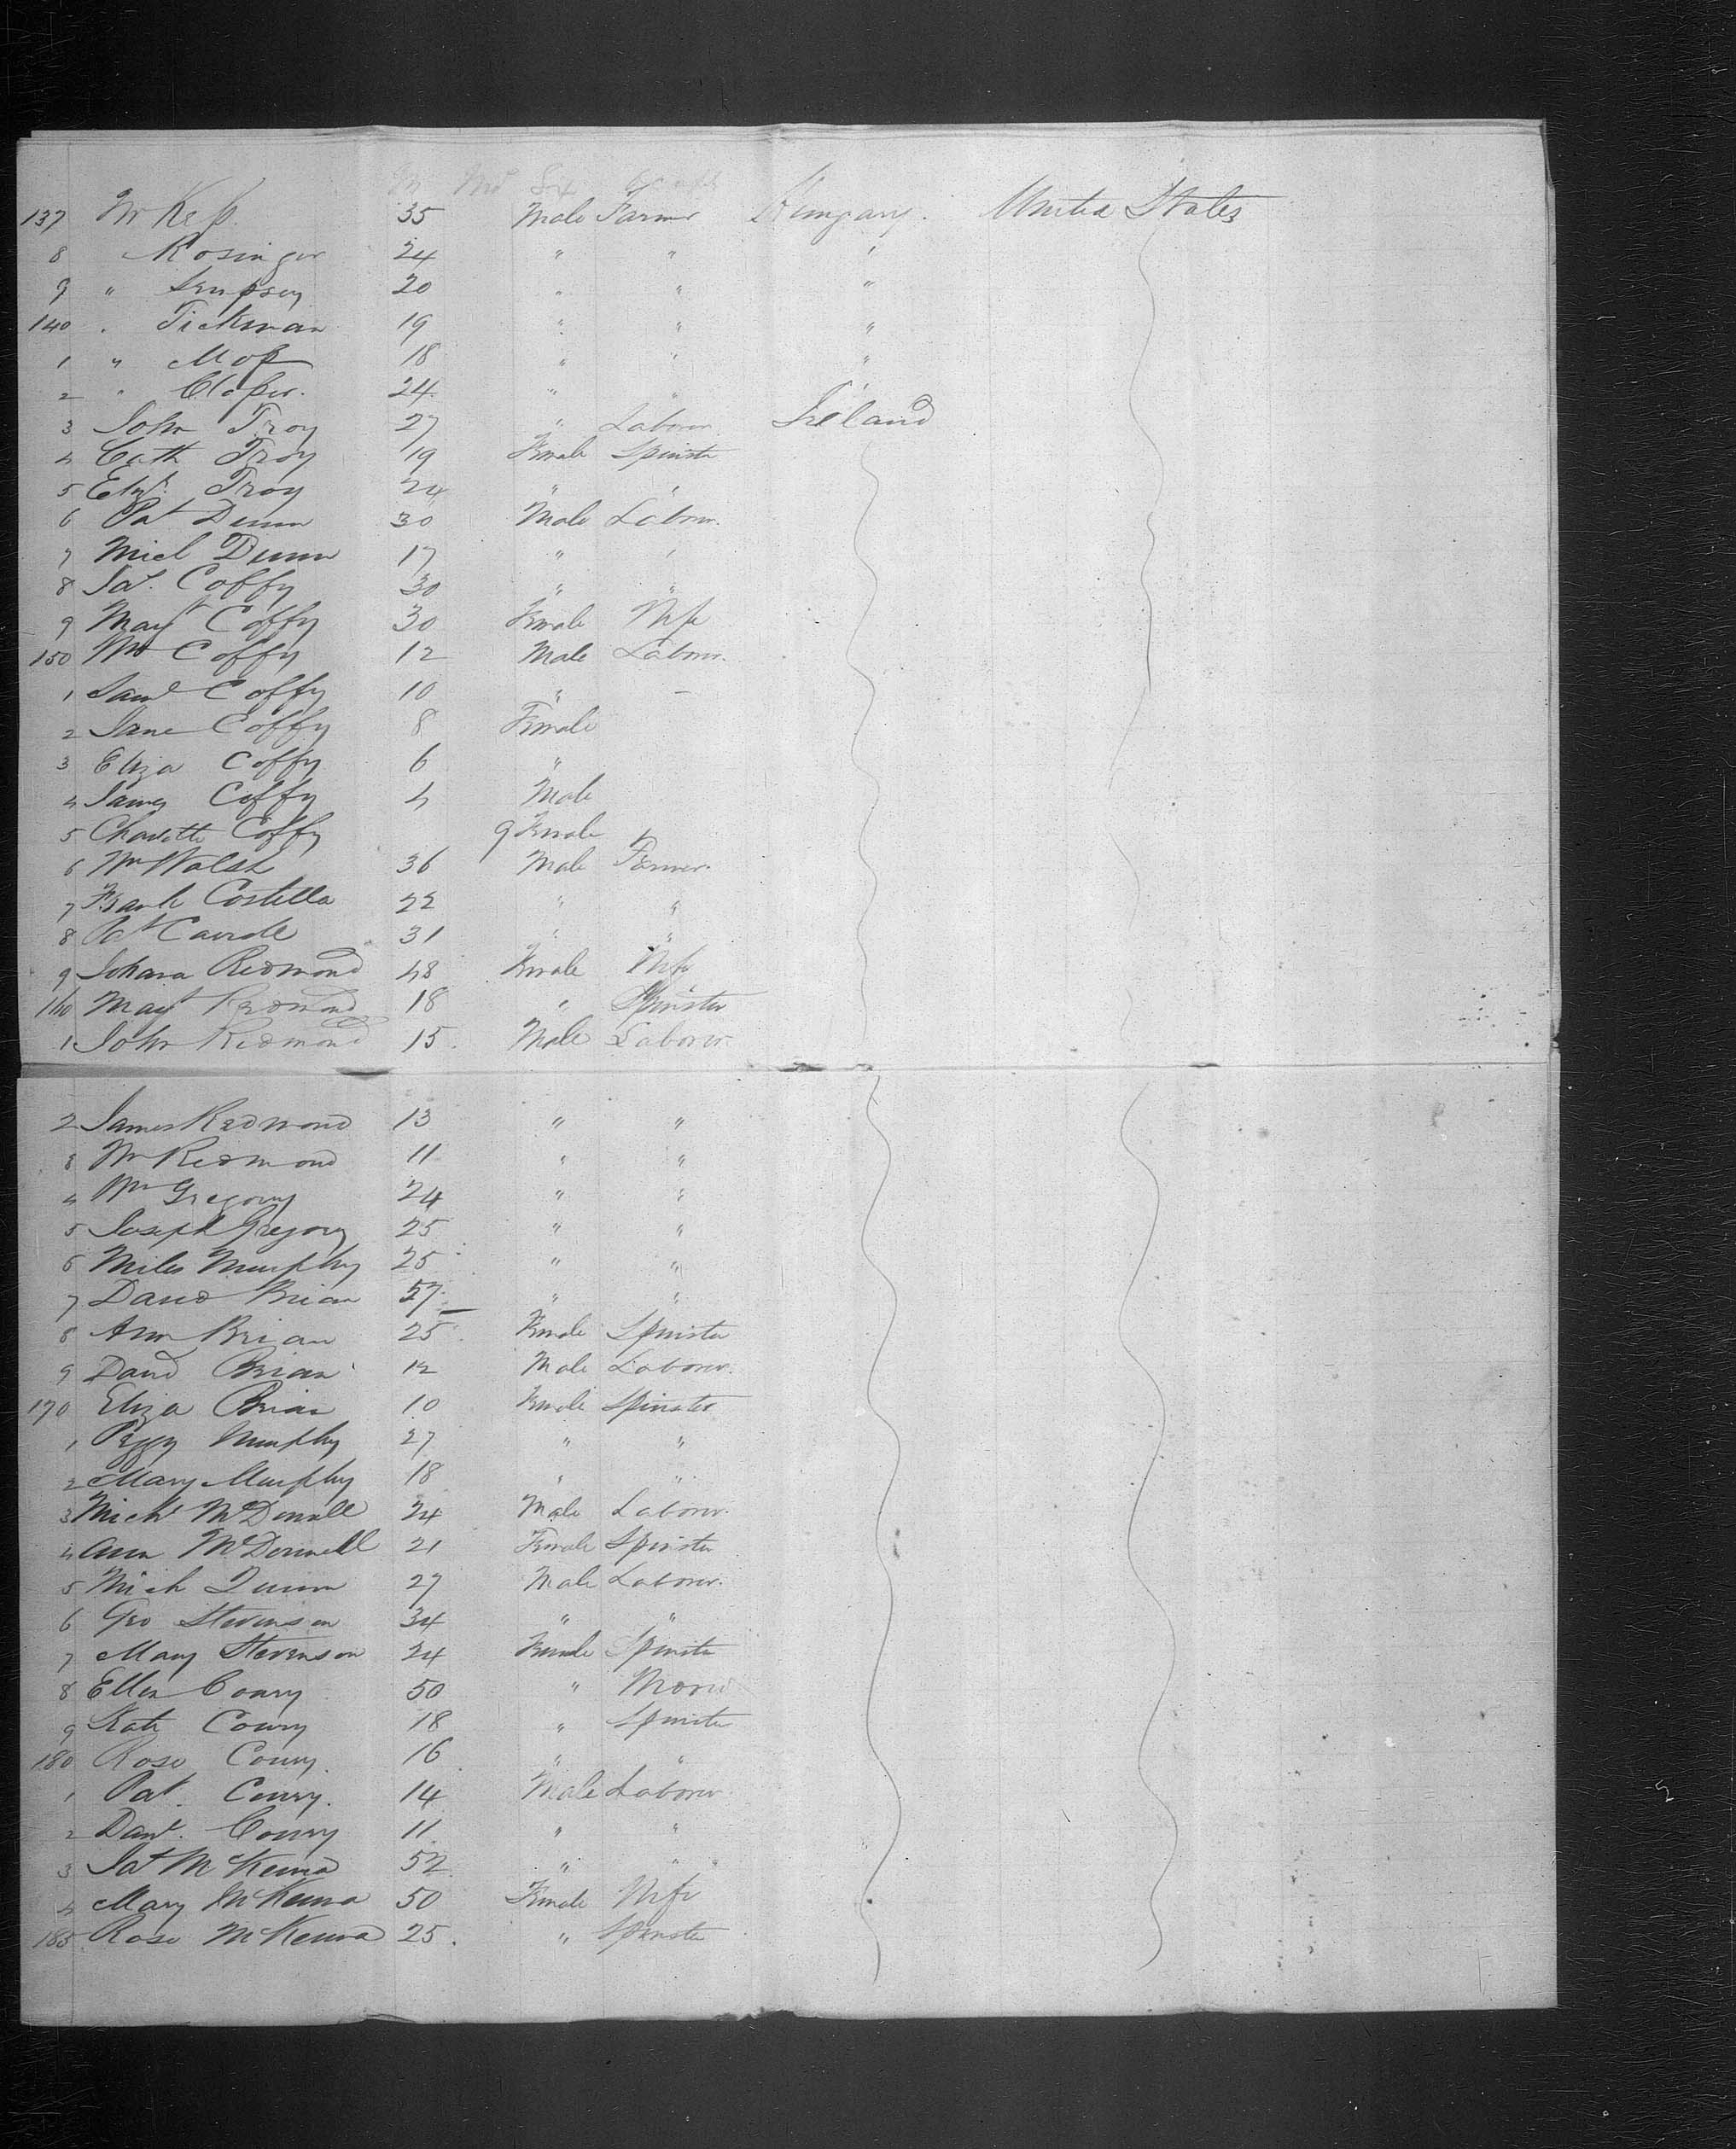 Mo Sex
137 Mr Keß 35 Male Farmer Hungary. United States
8 Rosinger 24 " " "
9 " 20 " " "
140 " Tickman 19 " " "
1 " Moß 18 " " "
2 " Cloßer. 24 " "
3 John Troy 27 " Laborer Ireland
4 Cath Troy 19 Female Spinster
5 Elizth Troy 24 " "
6 Pat Dunn 30 Male Laborer.
7 Michl Dunn 17 " "
8 Jas. Coffy 30 " "
9 Magt Coffy 30 Female Wife
150 Wm Coffy 12 Male Laborer.
1 Saml Coffy 10 " -
2 Jane Coffy 8 Female
3 Eliza Coffy 6 "
4 James Coffy 4 Male
5 Charlotte Coffy 9 Female
6 Wm Walsh 36 Male Farmer.
7 Frank Costella 22 " "
8 Pat Carroll 31 " "
9 Johana Redmond 48 Female Wife
160 Magt Redmond 18 " Spinster
1 John Redmond 15. Male Laborer.
2 James Redmond 13 " "
3 Wm Redmond 11 " "
4 Wm Gregory 24 " "
5 Joseph Gregory 25 " "
6 Miles Murphy 25 " "
7 David Brian 57 " "
8 Ann Brian 25 Female Spinster
9 David Brian 12 Male Laborer.
170 Eliza Brian 10 Female Spinster
1 Peggy Murphy 27 " "
2 Mary Murphy 18 " "
3 Michl McDonnell 24 Male Laborer.
4 Ann McDonnell 21 Female Spinster
5 Mich Dunn 27 Male Laborer.
6 Geo Stevenson 34 " "
7 Mary Stevenson 24 Female Spinster
8 Ellen Conry 50 "
9 Kate Conry 18 " Spinster
180 Rose Conry. 16 " "
1 Pat. Conry. 14 Male Laborer.
2 Danl. Conry 11 " "
3 Pat McKenna 52 " "
4 Mary McKenna 50 Female Wife
185 Rose McKenna 25. " Spinster